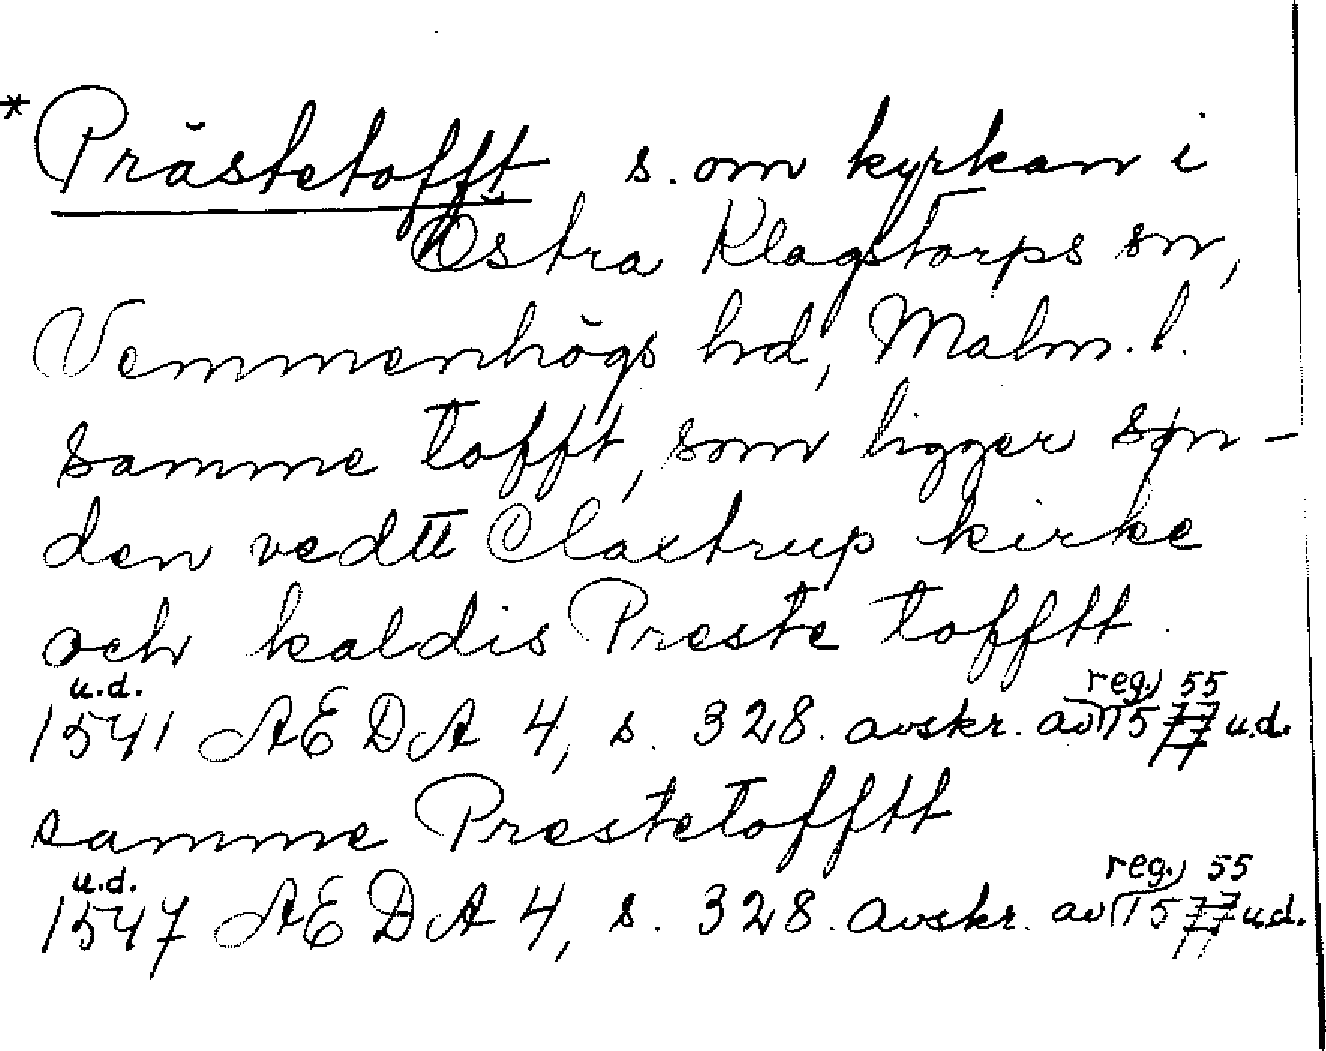 *Prästetofft s. om kyrkan i
Östra Klagstorps sn,
Vemmenhögs hd, Malm. l.
samme tofft, som ligger syn-
den vedtt Claxtrup kirke
och kaldis Preste tofftt.
u.d. reg., 55
1541 AEDA 4, s. 328. avskr. av 1577 u.d.
samme Prestetofftt
u.d. reg., 55
1547 AEDA 4, s. 328. avskr. av 1577 u.d.